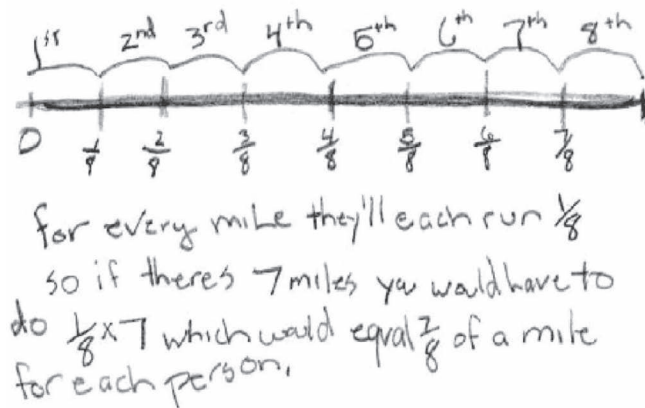 1st 2nd 3rd 4th 5th 6th 7th 8th
0 1/8 2/8 3/8 4/8 5/8 6/8 7/8
for every mile they'll each run 1/8
so if theres 7 miles you would have to
do 1/8 x 7 which would equal 7/8 of a mile
for each person.